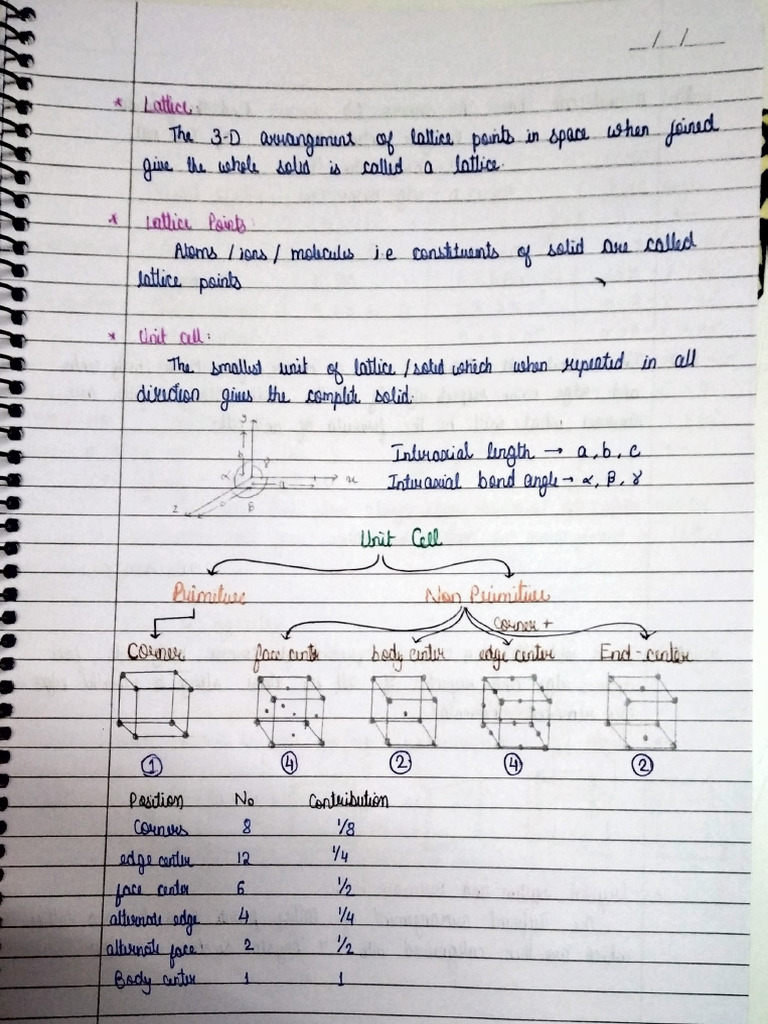 _/_/_
* Lattice:
The 3-D arrangement of lattice points in space when joined
give the whole solid is called a lattice.
* Lattice Points:
Atoms / ions / molecules i.e constituents of solid are called
lattice points
* Unit cell:
The smallest unit of lattice / solid which when repeated in all
direction gives the complete solid.
y
b
α γ
a x
z c β
Interaxial length → a, b, c
Interaxial bond angle → α, β, γ
Unit Cell
Primitive Non Primitive
Corner +
Corner face cente body center edge center End-center
1 4 2 4 2
Position No Contribution
Corners 8 1/8
edge center 12 1/4
face center 6 1/2
alternate edge 4 1/4
alternate face 2 1/2
Body center 1 1